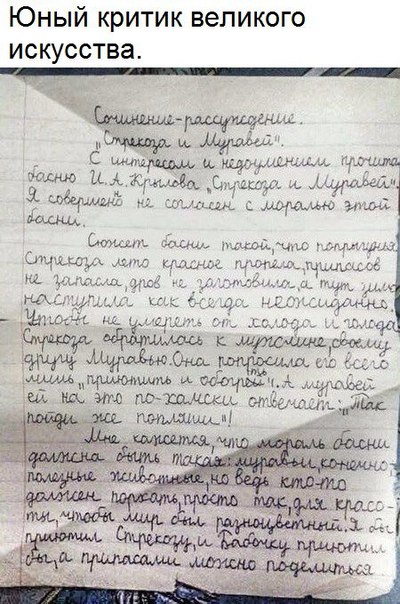 Юный критик великого
искусства.
Сочинение-рассуждение.
„Стрекоза и Муравей".
С интересом и недоумением прочита
басню И.А.Крылова „Стрекоза и Муравей".
Я совершено не согласен с моралью этой
басни.
Сюжет басни такой, что попрыгунья
Стрекоза лето красное пропела, припасов
не запасла, дров не заготовила, а тут зима
наступила как всегда неожиданно.
Чтобы не умереть от холода и голода
Стрекоза обратилась к мужчине, своему
другу Муравью. Она попросила его всего
лишь „приютить и обогреть". А муравей
ей на это по-хамски отвечает: „Так
пойди же попляши"!
Мне кажется, что мораль басни
должна быть такая: муравьи, конечно,
полезные животные, но ведь кто-то
должен порхать, просто так, для красо-
ты, чтобы мир был разноцветный. Я бы
приютил Стрекозу, и Бабочку приютил
бы, а припасами можно поделиться